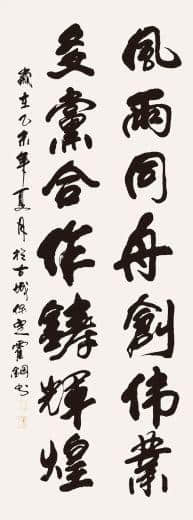 風雨同舟創伟業
多黨合作鑄輝煌
歲在乙未年夏月於古城保定霍鋼书